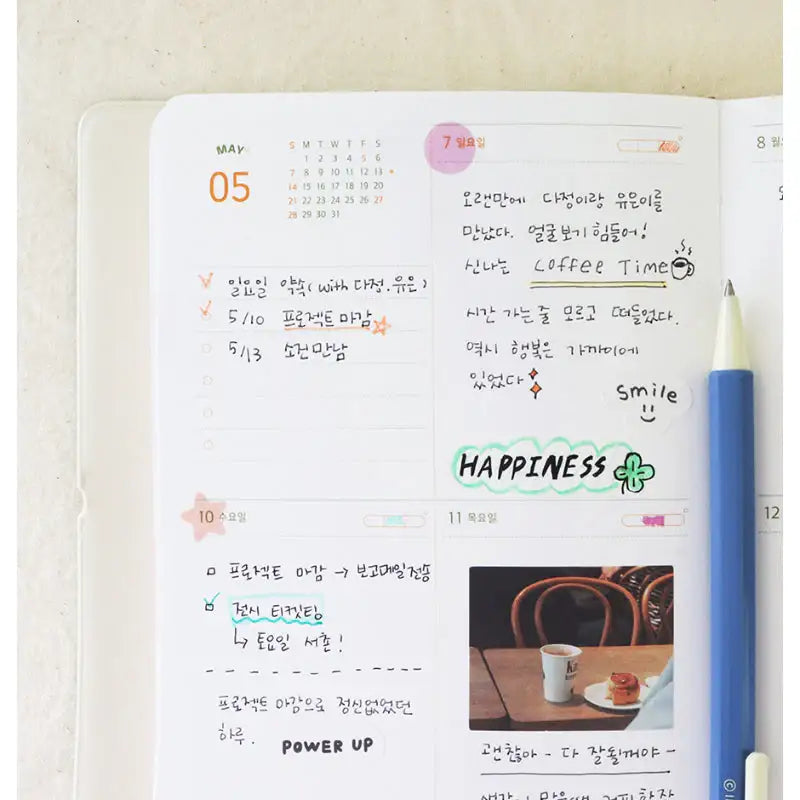 MAY
05
S M T W T F S
1 2 3 4 5 6
7 8 9 10 11 12 13
14 15 16 17 18 19 20
21 22 23 24 25 26 27
28 29 30 31
일요일 약속(with 다정.유은)
5/10 프로젝트 마감
5/13 소건만남
7 일요일
오랜만에 다정이랑 유은이를
만났다. 얼굴보기 힘들어!
신나는 Coffee Time
시간 가는 줄 모르고 떠들었다.
역시 행복은 가까이에
있었다
smile
HAPPINESS
8 월
10 수요일
프로젝트 마감 → 보고메일전송
전시 티켓팅
↳ 토요일 서촌!
프로젝트 마감으로 정신없었던
하루.
POWER UP
11 목요일
괜찮아 - 다 잘될꺼야 -
12